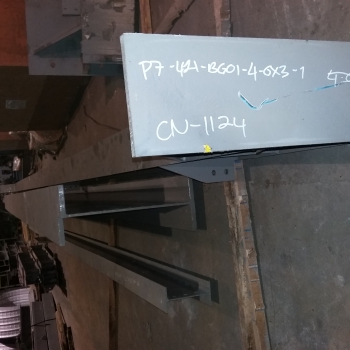 P7-421-BG01-4-GX3-1
CN-1124